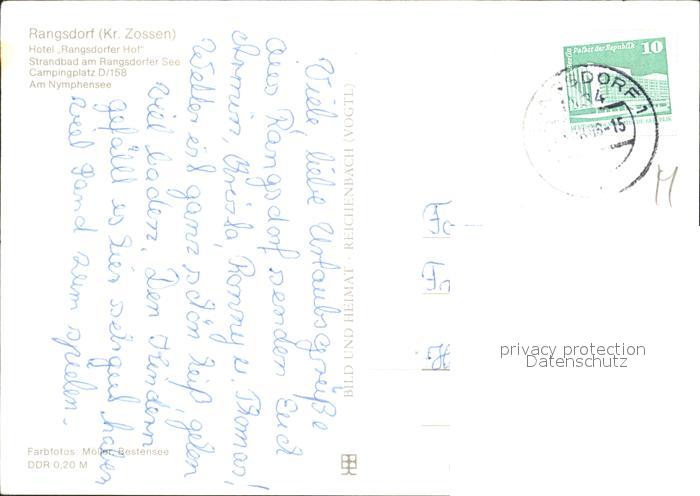 Rangsdorf (Kr. Zossen)
Hotel „Rangsdorfer Hof"
Strandbad am Rangsdorfer See
Campingplatz D/158
Am Nymphensee
Viele liebe Urlaubsgrüße
aus Rangsdorf senden Euch
Armin, Ronny u. Thomas!
Wetter ist ganz schön heiß, gehen
viel baden. Den Kindern
gefällt es hier sehr gut, haben
viel Sand zum spielen.
BILD UND HEIMAT · REICHENBACH (VOGTL)
Farbfotos: Möller, Bestensee
DDR 0,20 M
Berlin Palast der Republik 10
RANGSDORF 1
-15
M
privacy protection
Datenschutz